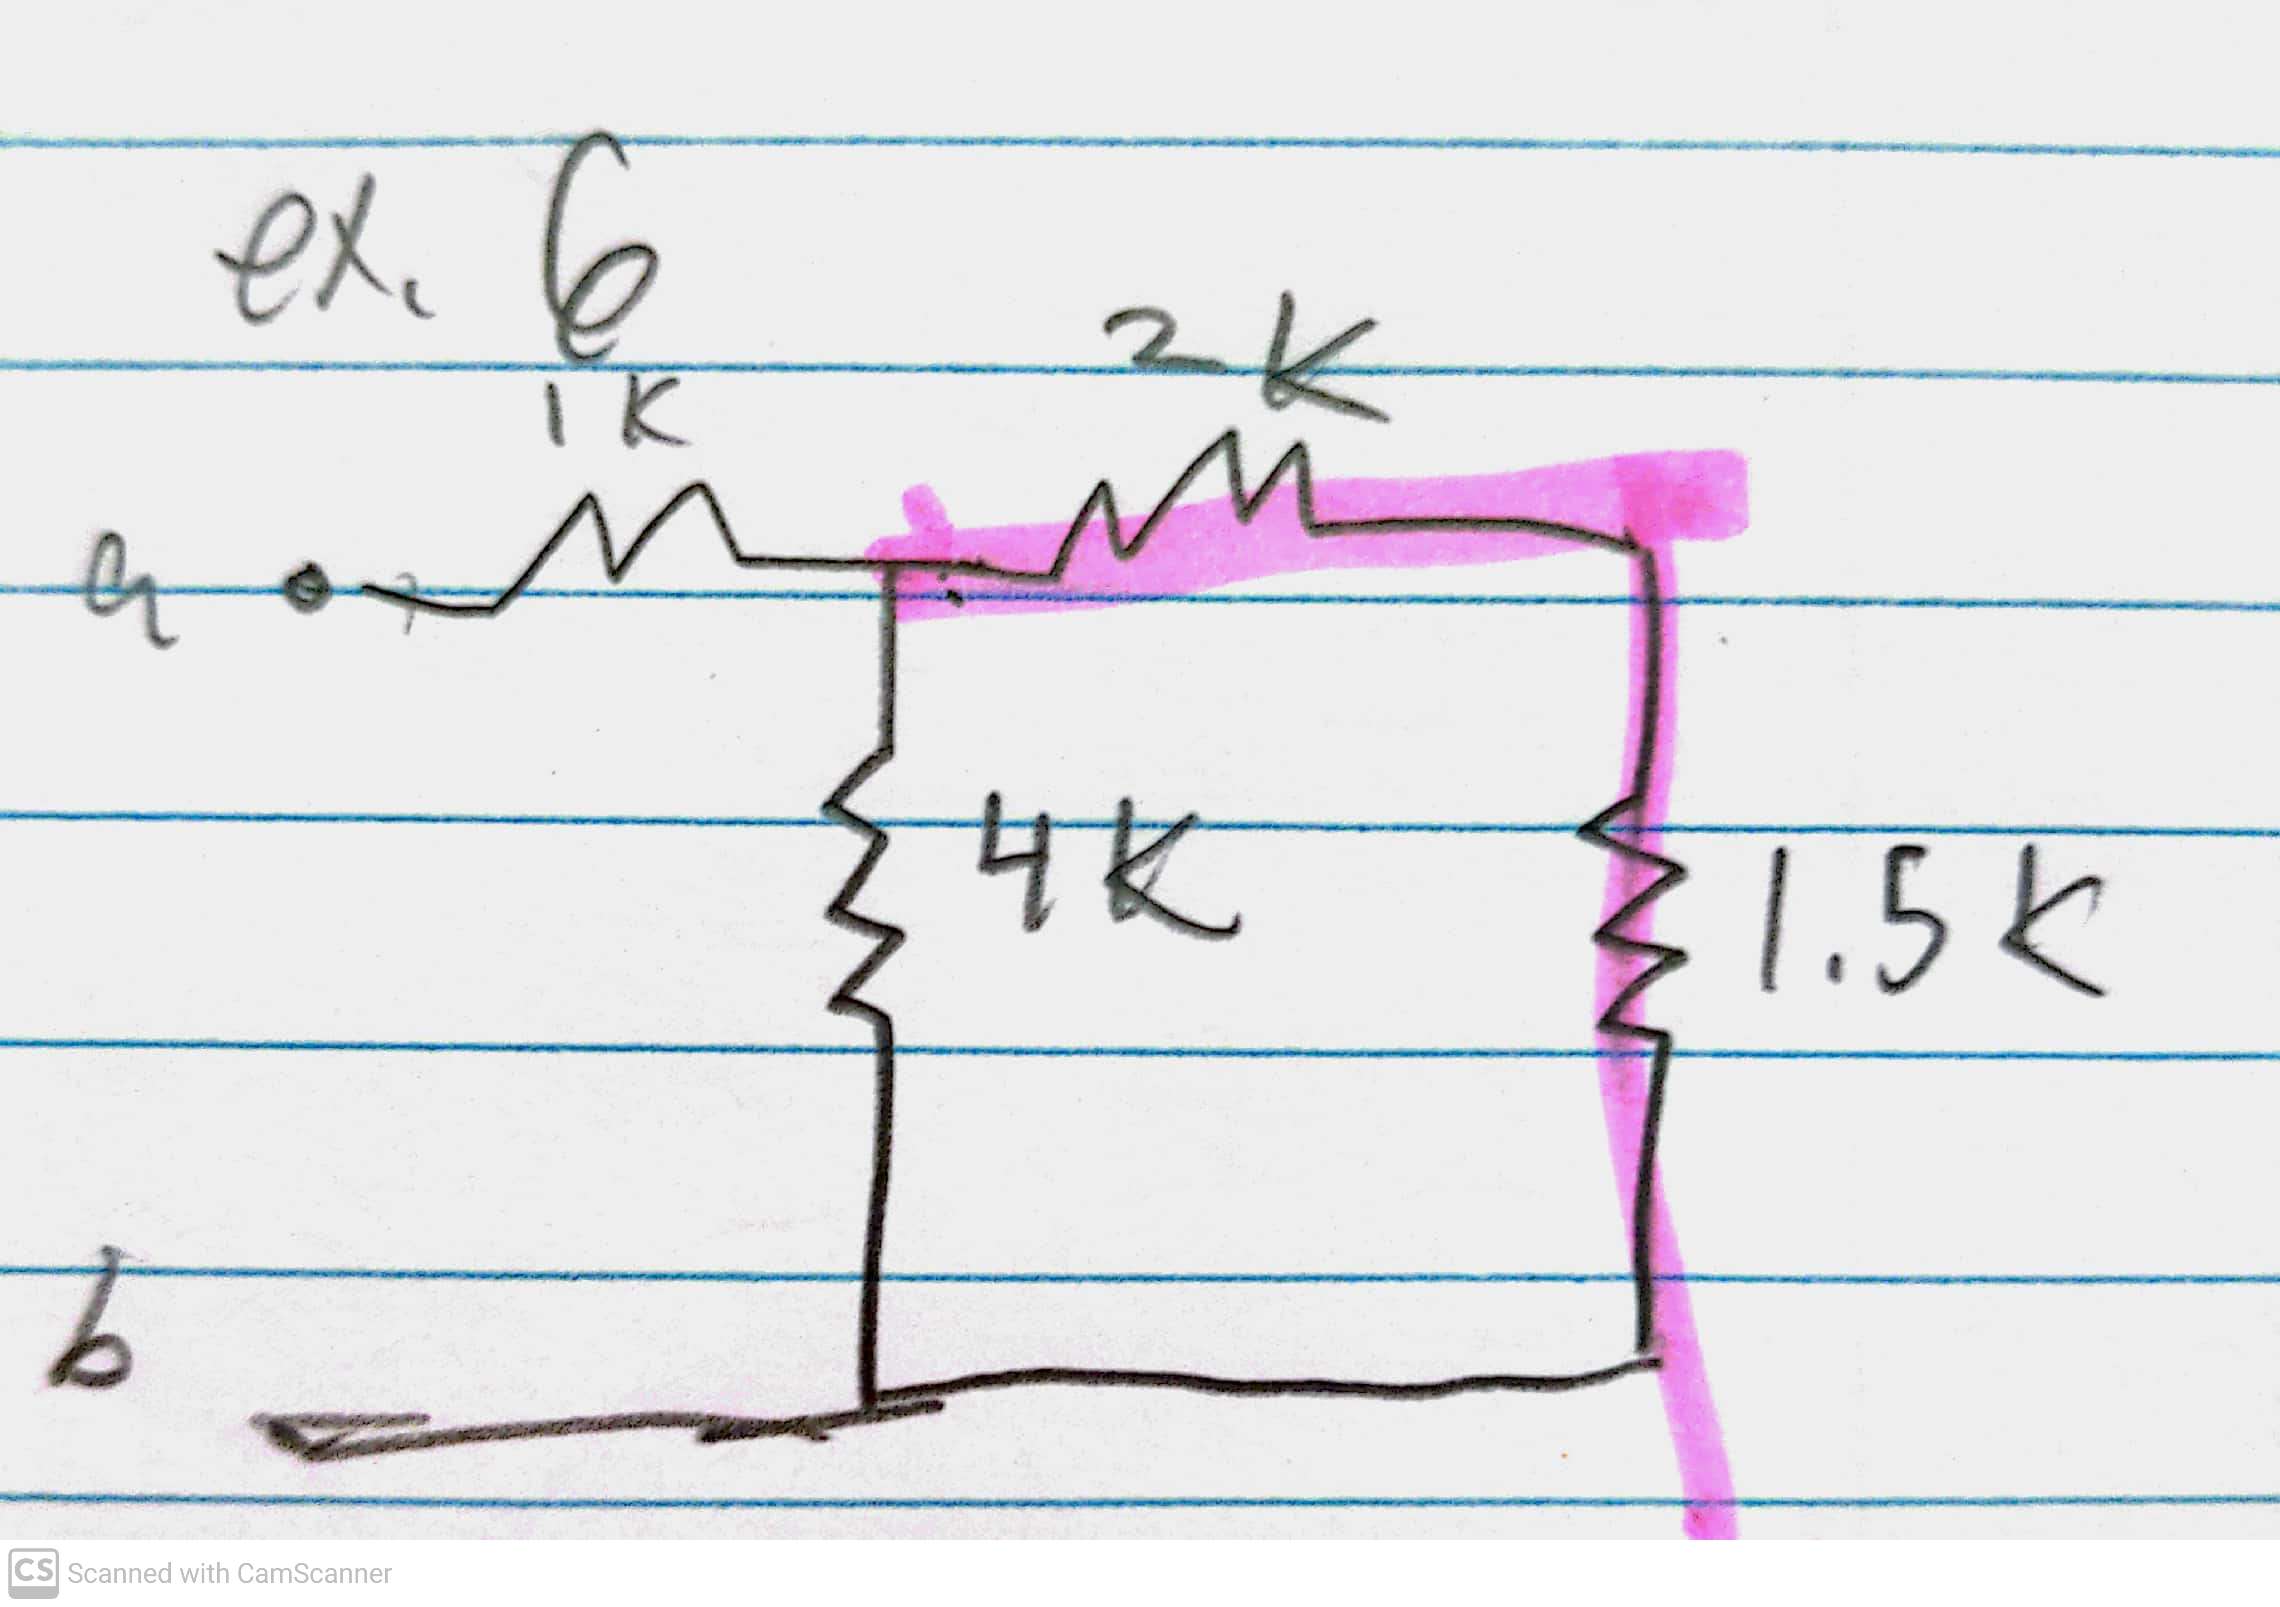 ex. 6
1K
2K
a
4K
1.5K
b
CS Scanned with CamScanner